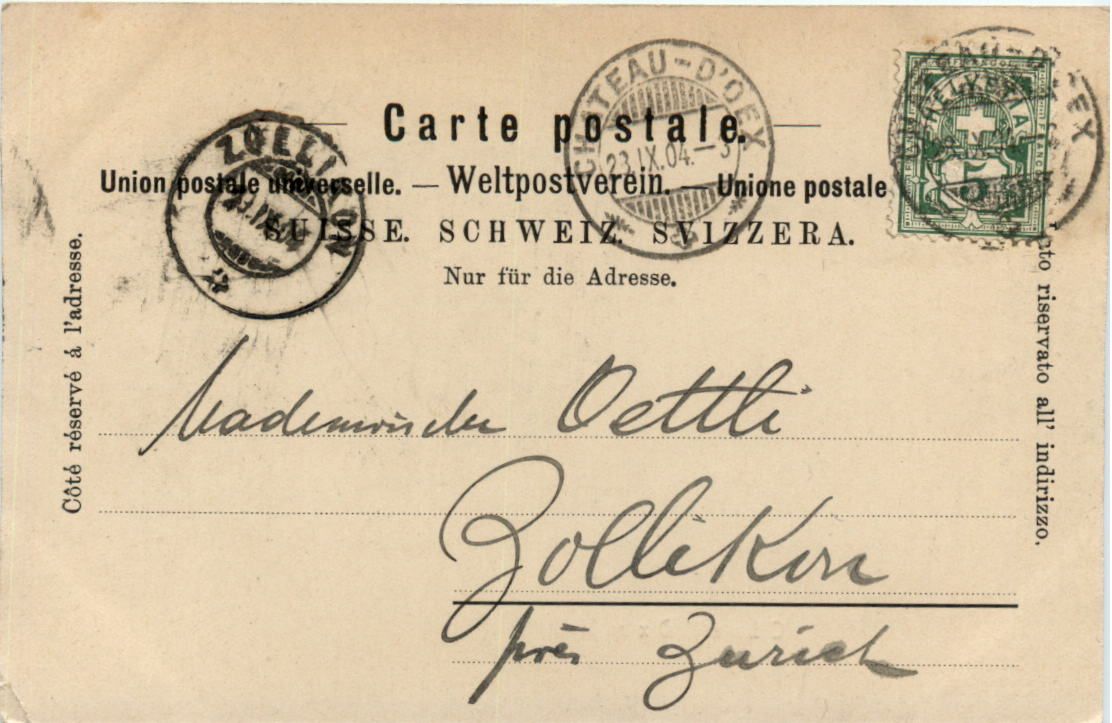 Carte postale.
CHATEAU-D'OEX
23.IX.04.–3
ZOELLIKON
Union postale universelle. — Weltpostverein. — Unione postale
SUISSE. SCHWEIZ. SVIZZERA.
Nur für die Adresse.
HELVETIA
FRANCO
5
Côté réservé á l'adresse.
riservato all' indirizzo.
Mademoiselle Oettli
Zollikon
près Zurich